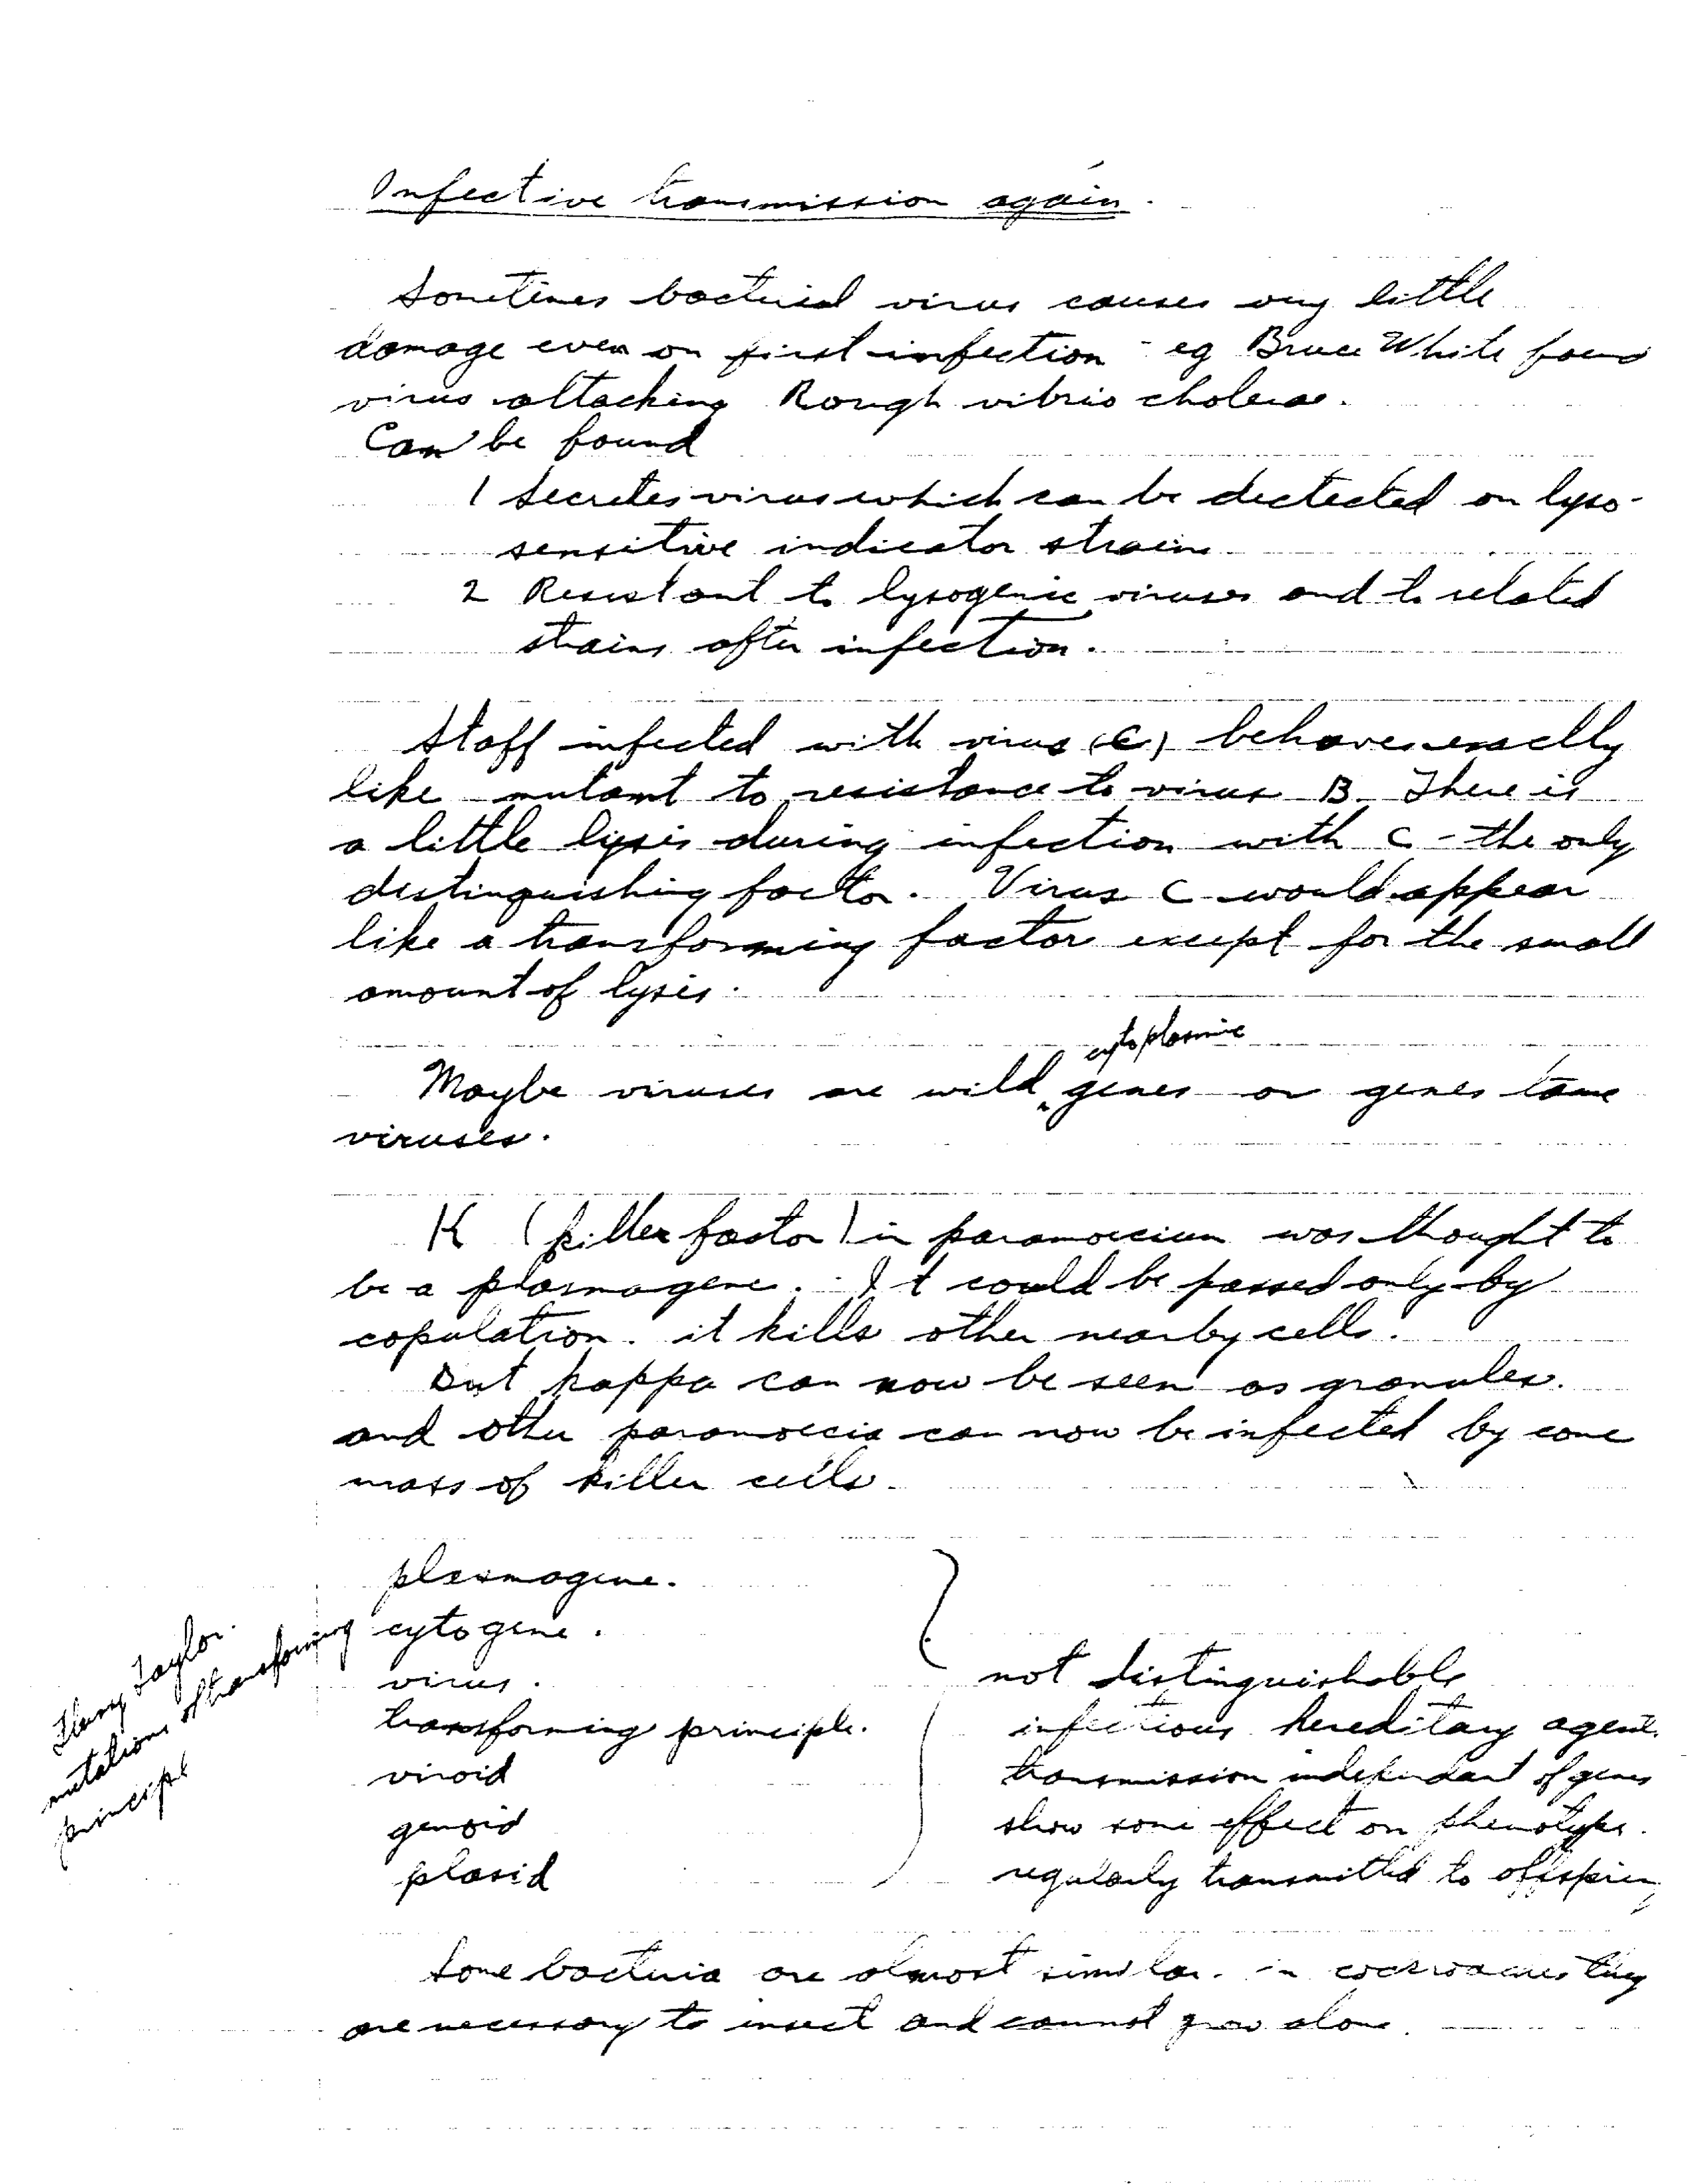 Infective transmission again.
Sometimes bacterial virus causes very little
damage even on first infection - eg Bruce White found
virus attacking Rough vibrio cholerae.
Can be found
1 Secretes virus which can be dectected on lyso-
sensitive indicator strain
2 Resistant to lysogenic viruses and to related
strains after infection.
Staff infected with virus (C) behaves exactly
like mutant to resistance to virus B. There is
a little lysis during infection with C - the only
distinguishing factor. Virus C would appear
like a transforming factor except for the small
amount of lysis.
cytoplasmic
Maybe viruses are wild genes or genes tame
viruses.
K (killer factor) in paramoecium was thought to
be a plasmagene. It could be passed only by
copulation. it kills other nearby cells.
But kappa can now be seen as granules.
and other paramoecia can now be infected by conc
mass of killer cells.
plasmagene.
cytogene.
virus.
transforming principle.
viroid
genoid
plasid
not distinguishable
infectious hereditary agent.
transmission independant of genes
show some effect on phenotype.
regularly transmitted to offspring
Taylor.
mutations of transforming
principle
Some bacteria are almost similar. in cockroaches they
are necessary to insect and cannot grow alone.